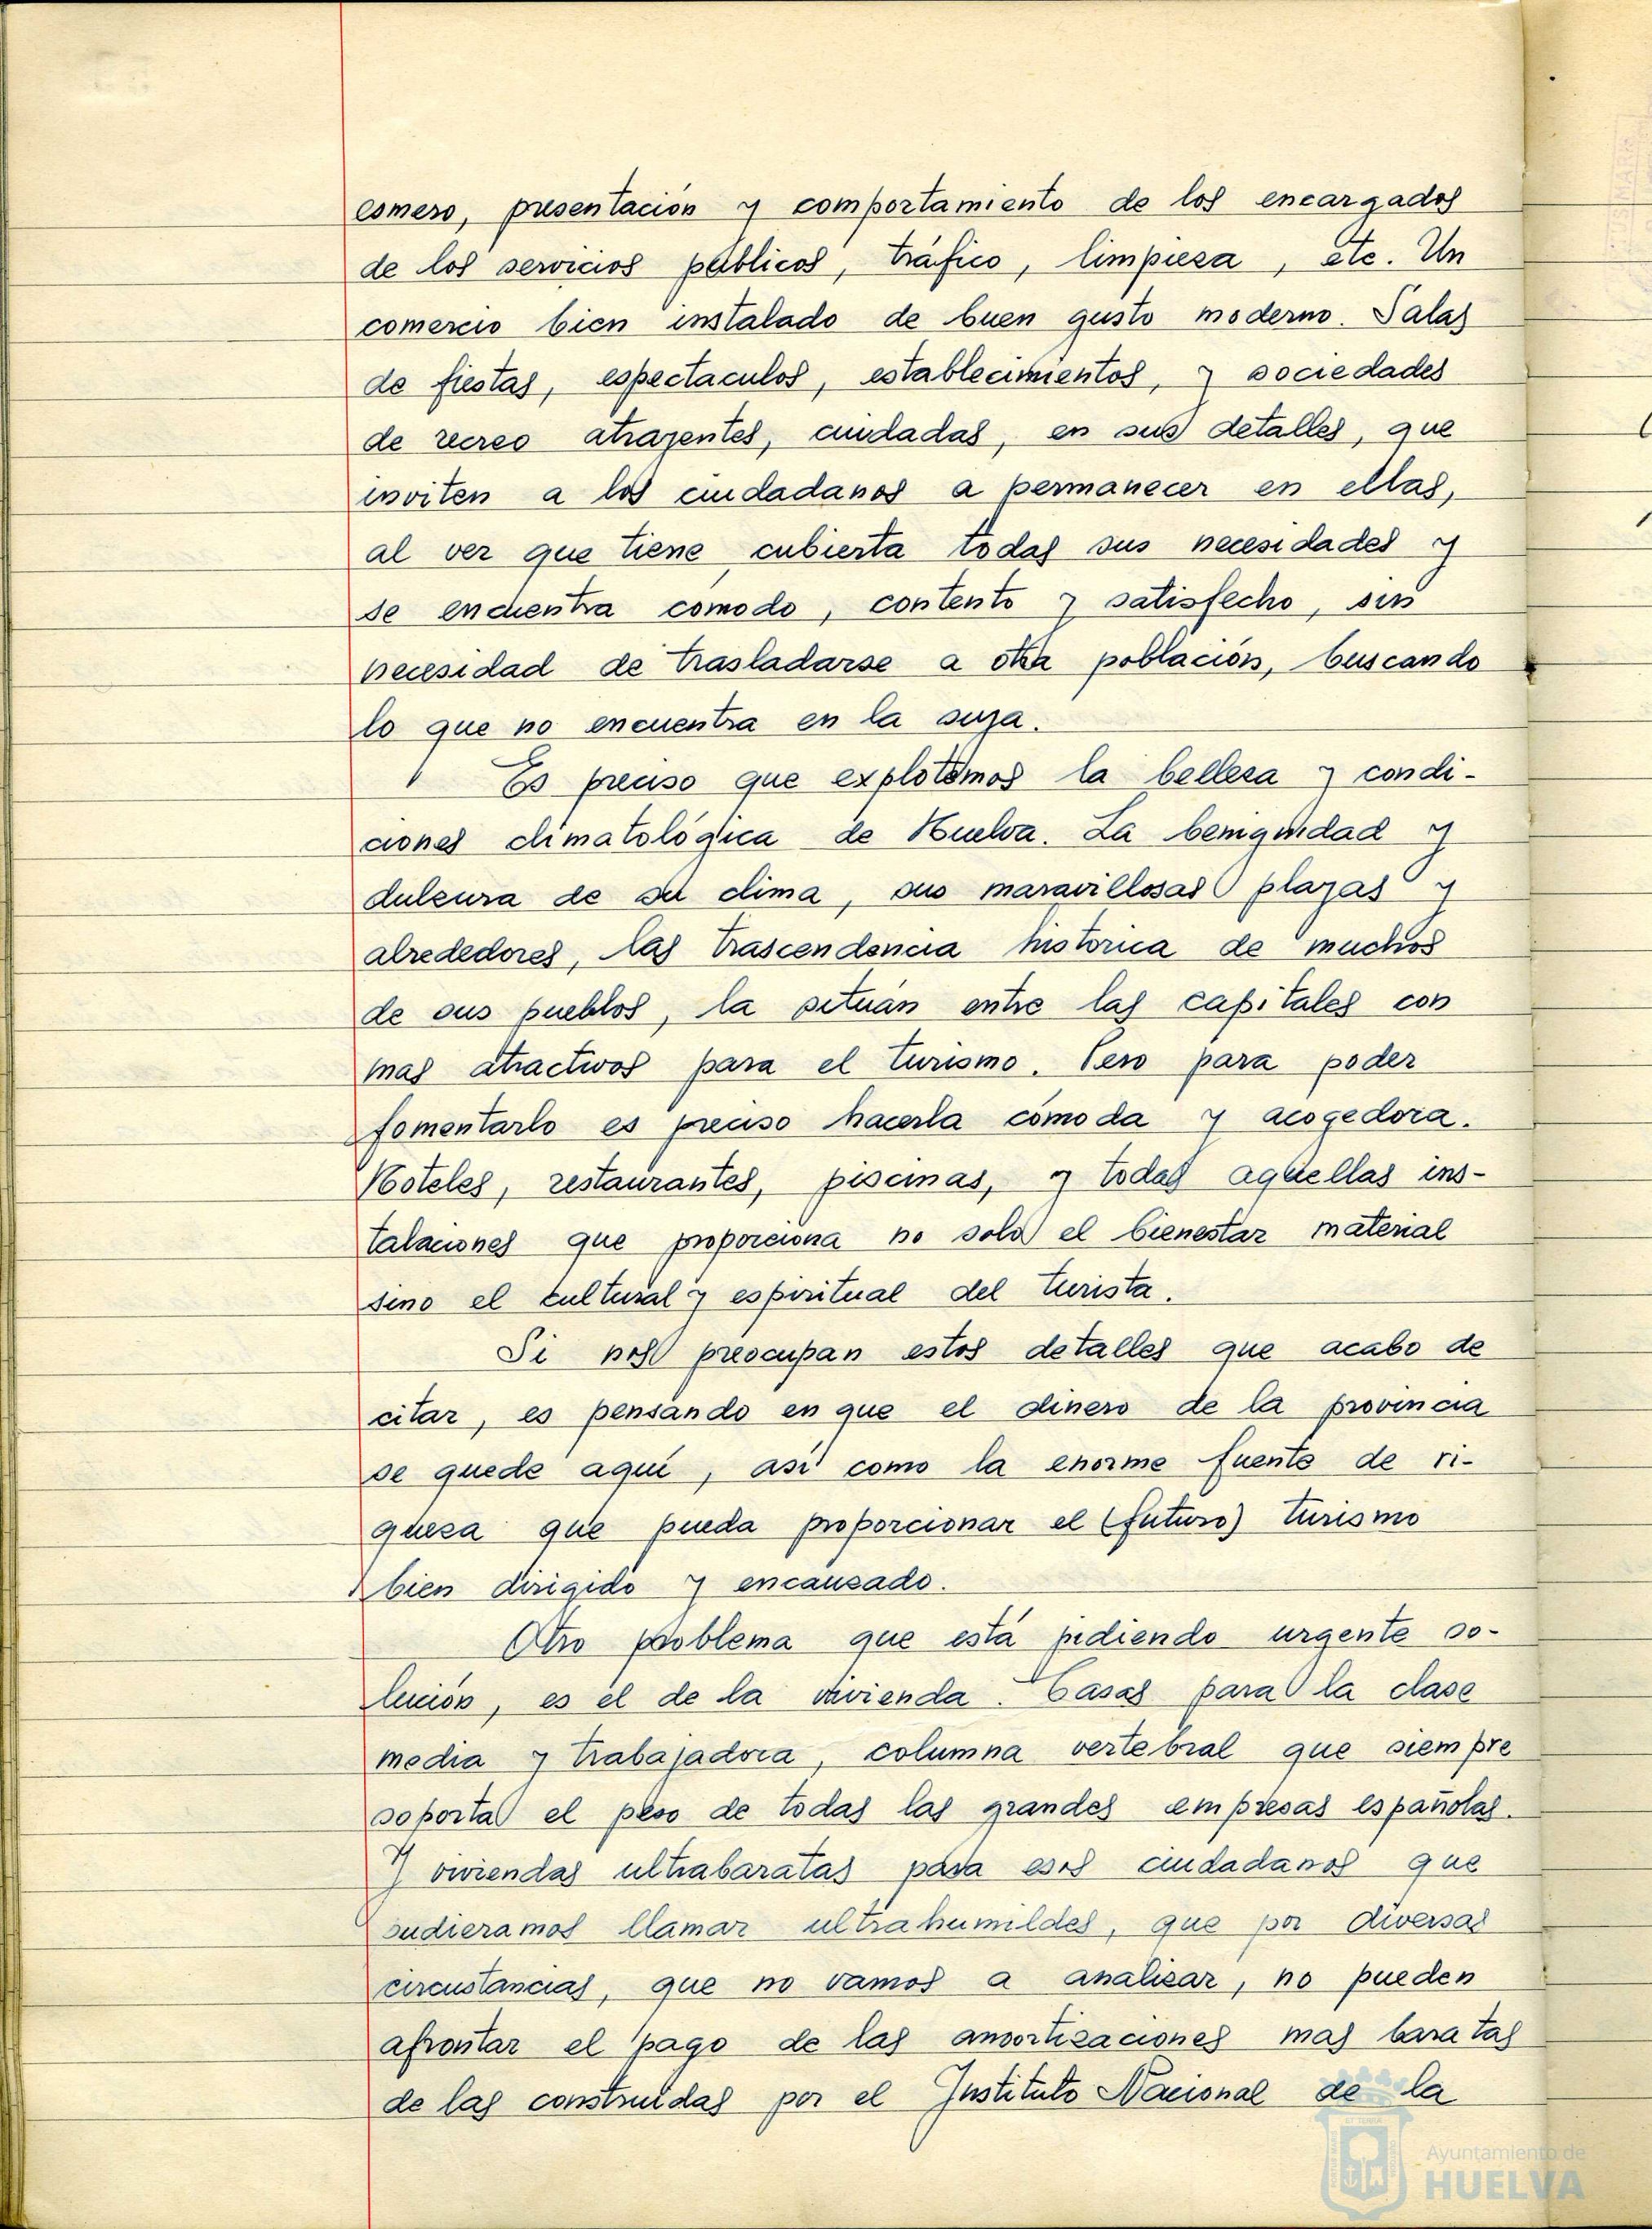 esmero, presentación y comportamiento de los encargados
de los servicios públicos, tráfico, limpieza, etc. Un
comercio bien instalado de buen gusto moderno. Salas
de fiestas, espectaculos, establecimientos, y sociedades
de recreo atrayentes, cuidadas, en sus detalles, que
inviten a los ciudadanos a permanecer en ellas,
al ver que tiene cubierta todas sus necesidades y
se encuentra cómodo, contento y satisfecho, sin
necesidad de trasladarse a otra población, buscando
lo que no encuentra en la suya.
Es preciso que explotemos la belleza y condi-
ciones climatológica de Huelva. La benignidad y
dulzura de su clima, sus maravillosas playas y
alrededores, las trascendencia historica de muchos
de sus pueblos, la situán entre las capitales con
mas atractivos para el turismo. Pero para poder
fomentarlo es preciso hacerla cómoda y acogedora.
Hoteles, restaurantes, piscinas, y todas aquellas ins-
talaciones que proporciona no solo el bienestar material
sino el cultural y espiritual del turista.
Si nos preocupan estos detalles que acabo de
citar, es pensando en que el dinero de la provincia
se quede aquí, así como la enorme fuente de ri-
queza que pueda proporcionar el (futuro) turismo
bien dirigido y encauzado.
Otro problema que está pidiendo urgente so-
lución, es el de la vivienda. Casas para la clase
media y trabajadora, columna vertebral que siempre
soporta el peso de todas las grandes empresas españolas.
Y viviendas ultrabaratas para esos ciudadanos que
pudieramos llamar ultrahumildes, que por diversas
circustancias, que no vamos a analizar, no pueden
afrontar el pago de las amortizaciones mas baratas
de las construidas por el Instituto Nacional de la
Ayuntamiento de
HUELVA